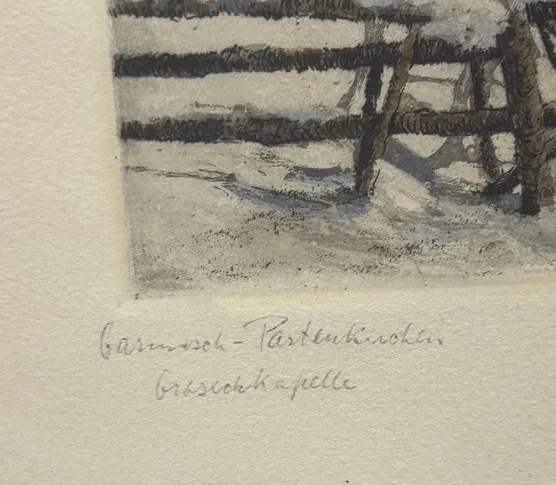 Garmisch-Partenkirchen
Graseckkapelle